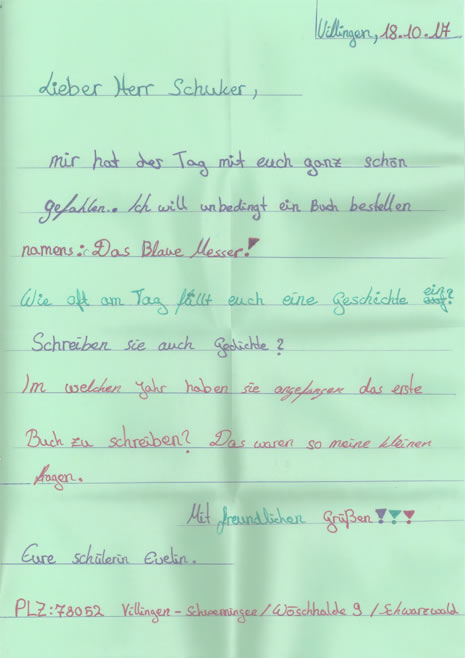 Villingen, 18.10.17
Lieber Herr Schuker,
mir hat der Tag mit euch ganz schön
gefahlen.. Ich will unbedingt ein Buch bestellen
namens: Das Blaue Messer!
Wie oft am Tag fällt euch eine Geschichte ein?
Schreiben sie auch Gedichte?
Im welchen Jahr haben sie angefangen das erste
Buch zu schreiben? Das waren so meine kleinen
fragen.
Mit freundlichen Grüßen!!!
Eure schülerin Evelin.
PLZ: 78052 Villingen - Schwenningen / Wöschhalde 9 / Schwarzwald